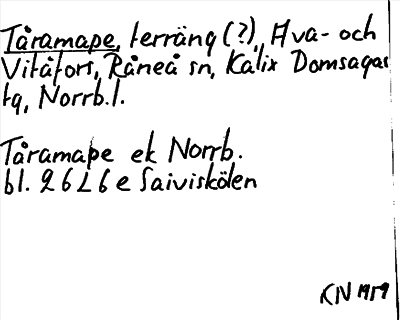 Tåramape, terräng (?), Hva- och
Vitåfors, Råneå sn, Kalix Domsagas
tg, Norrb. l.
Tåramape ek Norrb.
bl. 26 L 6 e Saiviskölen
KN 1959